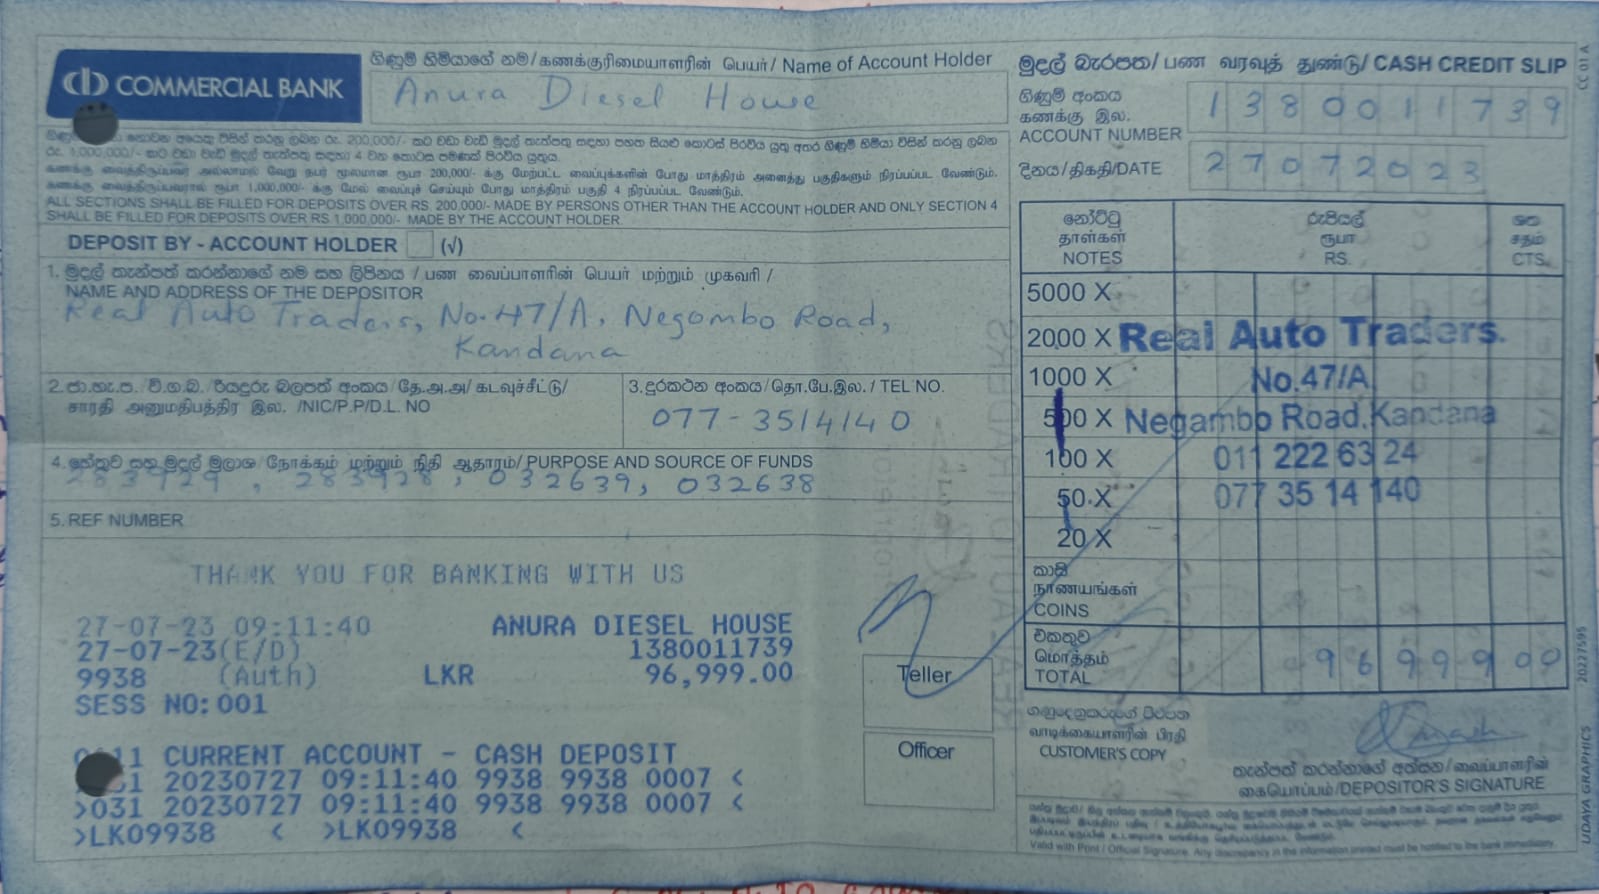 COMMERCIAL BANK
ගිණුම් හිමියාගේ නම/கணக்குரிமையாளரின் பெயர்/ Name of Account Holder
Anura Diesel House
මුදල් බැරපත/ பண வரவுத் துண்டு/ CASH CREDIT SLIP
CC 01 A
ගිණුම් අංකය
கணக்கு இல.
ACCOUNT NUMBER
1380011739
දිනය/திகதி/DATE
27072023
රු. 200,000/- කට වඩා වැඩි මුදල් තැන්පතු සඳහා පහත සියළු කොටස් පිරවිය යුතු අතර ගිණුම් හිමියා විසින් කරනු ලබන
රු. 1,000,000/- කට වඩා වැඩි මුදල් තැන්පතු සඳහා 4 වන කොටස පමණක් පිරවිය යුතුය.
கணக்கு வைத்திருப்பவர் அல்லாமல் வேறு நபர் மூலமான ரூபா 200,000/- க்கு மேற்பட்ட வைப்புக்களின் போது மாத்திரம் அனைத்து பகுதிகளும் நிரப்பப்பட வேண்டும்.
கணக்கு வைத்திருப்பவரால் ரூபா 1,000,000/- க்கு மேல் வைப்புச் செய்யும் போது மாத்திரம் பகுதி 4 நிரப்பப்பட வேண்டும்.
ALL SECTIONS SHALL BE FILLED FOR DEPOSITS OVER RS. 200,000/- MADE BY PERSONS OTHER THAN THE ACCOUNT HOLDER AND ONLY SECTION 4
SHALL BE FILLED FOR DEPOSITS OVER RS 1,000,000/- MADE BY THE ACCOUNT HOLDER.
DEPOSIT BY - ACCOUNT HOLDER (√)
1. මුදල් තැන්පත් කරන්නාගේ නම සහ ලිපිනය / பண வைப்பாளரின் பெயர் மற்றும் முகவரி /
NAME AND ADDRESS OF THE DEPOSITOR
Real Auto Traders, No.47/A, Negombo Road,
Kandana
2. ජා.හැ.ප./ වි.ග.බ./රියදුරු බලපත් අංකය/தே.அ.அ/கடவுச்சீட்டு/
சாரதி அனுமதிபத்திர இல. /NIC/P.P/D.L. NO
3. දුරකථන අංකය/தொ.பே.இல. / TEL NO.
077-3514140
4. හේතුව සහ මුදල් මූලාශ්‍ර/நோக்கம் மற்றும் நிதி ஆதாரம்/ PURPOSE AND SOURCE OF FUNDS
283929, 283928, 032639, 032638
5. REF NUMBER
THANK YOU FOR BANKING WITH US
27-07-23 09:11:40 ANURA DIESEL HOUSE
27-07-23(E/D) 1380011739
9938 (Auth) LKR 96,999.00
SESS NO: 001
CURRENT ACCOUNT - CASH DEPOSIT
20230727 09:11:40 9938 9938 0007 <
>031 20230727 09:11:40 9938 9938 0007 <
>LK09938 < >LK09938 <
Teller
Officer
නෝට්ටු
தாள்கள்
NOTES
රුපියල්
ரூபா
RS.
ශත
சதம்
CTS.
5000 X
2000 X Real Auto Traders.
1000 X No.47/A
500 X Negambo Road.Kandana
100 X 011 222 63 24
50 X 077 35 14 140
20 X
කාසි
நாணயங்கள்
COINS
එකතුව
மொத்தம்
TOTAL
96999 00
ගනුදෙනුකරුගේ පිටපත
வாடிக்கையாளரின் பிரதி
CUSTOMER'S COPY
තැන්පත් කරන්නාගේ අත්සන/வைப்பாளரின்
கையொப்பம்/DEPOSITOR'S SIGNATURE
Valid with Print / Official Signature. Any discrepancy in the information printed must be notified to the bank immediately.
UDAYA GRAPHICS 20227595